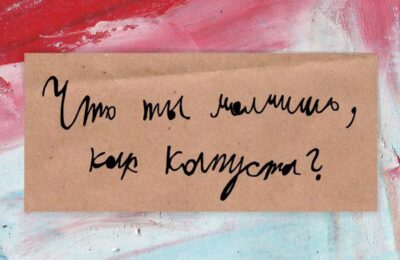 Что ты молчишь,
как капуста?